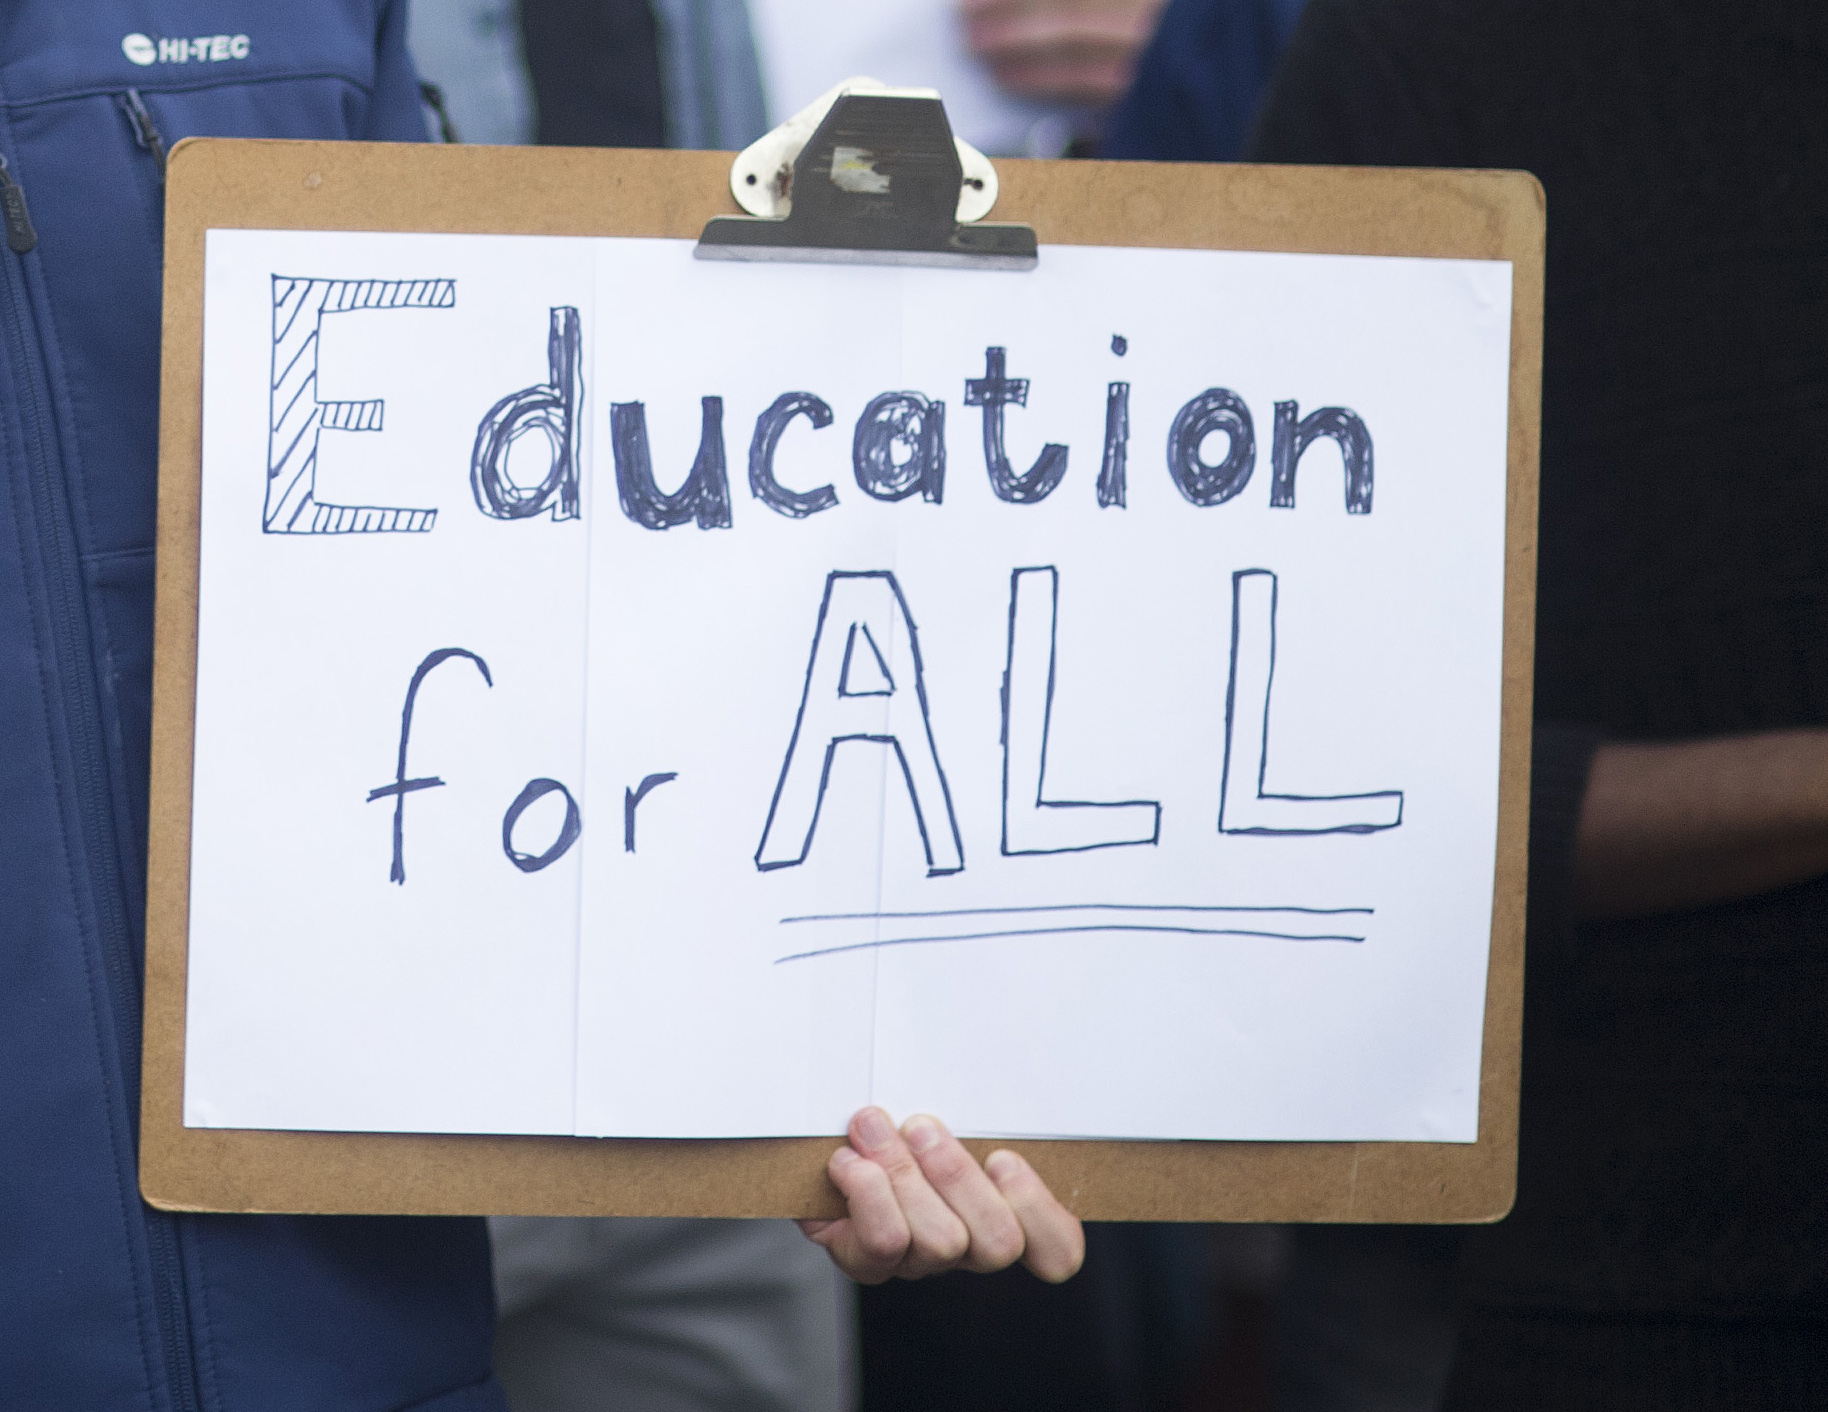 HI-TEC
Education
for ALL